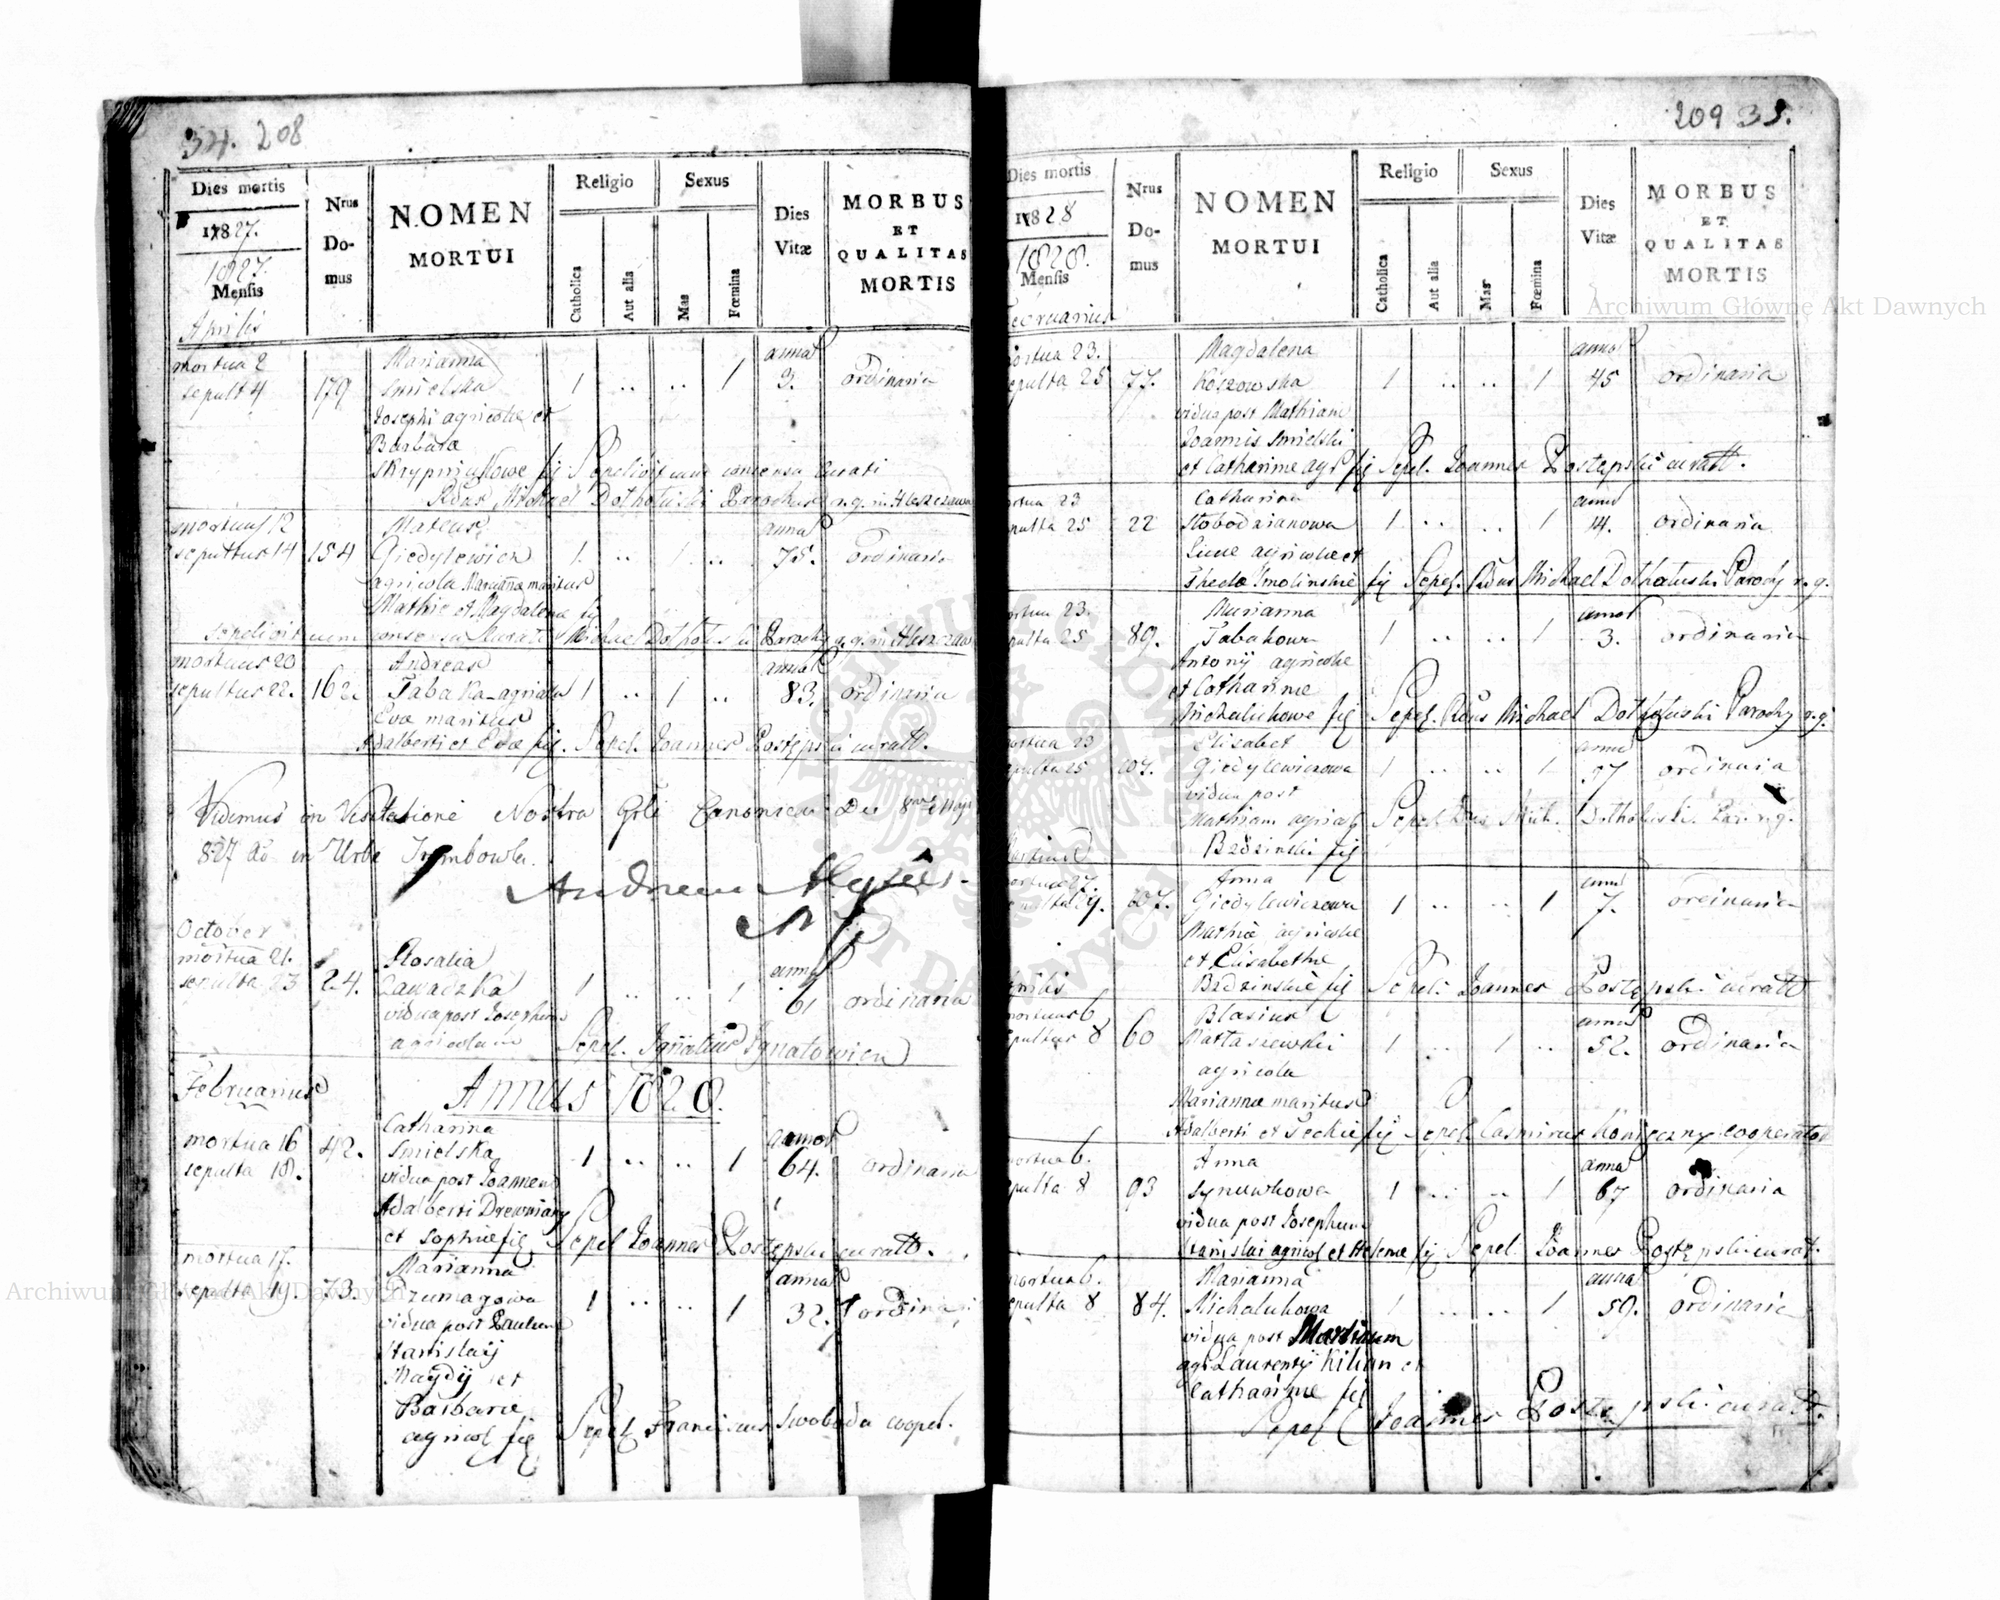 34. 208
Dies mortis
1827.
1827.
Mensis
Aprilis
Nrus Domus
NOMEN MORTUI
Religio
Catholica
Aut alia
Sexus
Mas
Fœmina
Dies Vitæ
MORBUS ET QUALITAS MORTIS
mortua 2 Marianna anno
sepult 4 179 Smielska 1 .. .. 1 3. ordinaria
Josephi agricolae et
Barbara
Skrypniukowe fig Sepelivit cum consensu Curati
Rdus Michael Dolholuski Parochus r. g. in Hleszczawa
mortuus 12 Mateus anno
sepultus 14 154 Giedylewicz 1. .. 1 .. 75. ordinaria
agricola Mariannae maritus
Mathie et Magdalena fig
sepelivit cum consensu Curati Michael Dolholuski Parochy r. g. in Hleszczaw
mortuus 20 Andreas anno
sepultus 22. 162. Tabaka agricola 1 .. 1 .. 83. ordinaria
Evae maritus
Adalberti et Evae fig. Sepel. Joannes Postępski curatt.
Vidimus in Visitatione Nostra Grli Canonica Die 8va Maji
827 in Urbe Trembowla.
Andreas
October
mortua 21. Rosalia anno
sepulta 23 24. Zawadzka 1 .. .. 1 61 ordinaria
vidua post Josephum
agricolam Sepel. Ignatius Ignatowicz
Februarius Annus 1828.
Catharina anno
mortua 16 42. Smielska 1 .. .. 1 64. ordinaria
sepulta 18. vidua post Joannem
Adalberti Drewniany
et Sophiae fig Sepel Joannes Postępski curatt.
mortua 17. Marianna anno
sepulta 19. 73. 1 .. .. 1 32. ordinaria
vidua post Paulum
Stanislaij
Maydij et
Barbarae
agricol fig Sepel Franciscus Swoboda cooper.
209 35.
Dies mortis
1828
1828.
Mensis
Februarius
Nrus Domus
NOMEN MORTUI
Religio
Catholica
Aut alia
Sexus
Mas
Fœmina
Dies Vitæ
MORBUS ET QUALITAS MORTIS
mortua 23. Magdalena anno
sepulta 25 77. Koszowska 1 .. .. 1 45 ordinaria
vidua post Mathiam
Joannis Smielski
et Catharinae agr fig Sepel. Joannes Postępski curatt.
mortua 23 Catharina anno
sepulta 25 22 Slobodzianowa 1 .. .. 1 14. ordinaria
Lucae agricolae et
Theclae Smolinskie fig Sepel. Rdus Michael Dolholuski Parochy r. g.
mortua 23. Marianna anno
sepulta 25 89. Tabakowa 1 .. .. 1 3. ordinaria
Antonij agricolae
et Catharinae
Michalukowe fig Sepel. Rdus Michael Dolholuski Parochy r. g.
mortua 23 Elisabet anno
sepulta 25 107. Giedylewiczowa 1 .. .. 1 37 ordinaria
vidua post
Mathiam agricol Sepel. Dus Mich. Dolholuski Par. r. g.
Martius Bzdzinski fig
mortua 27. Anna anno
107. Giedylewiczowa 1 .. .. 1 7. ordinaria
Mathiae agricolae
et Elisabethae
Aprilis Bzdzinskie fig Sepel. Joannes Postępski curatt
mortuus 6 Blasius anno
sepultus 8 60 Martaszewski 1 .. 1 .. 52. ordinaria
agricola
Mariannae maritus
Adalberti et Teclae fig Sepel. Casmirus Konieczny cooperator
mortua 6. Anna anno
sepulta 8 93 Synuwkowa 1 .. .. 1 67 ordinaria
vidua post Josephum
Stanislai agricol et Helenae fig Sepel. Joannes Postępski curat.
mortua 6. Marianna anno
sepulta 8 84. Michalukowa 1 .. .. 1 59. ordinaria
vidua post Martinum
agr Laurentij Kilian et
Catharinae fig
Sepel Joannes Postępski curatt.
Archiwum Główne Akt Dawnych
Archiwum Główne Akt Dawnych
ARCHIWUM GŁÓWNE AKT DAWNYCH